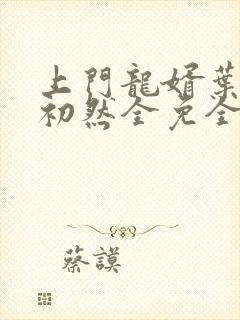 上門龍婿葉
初然全免全
蔡謨